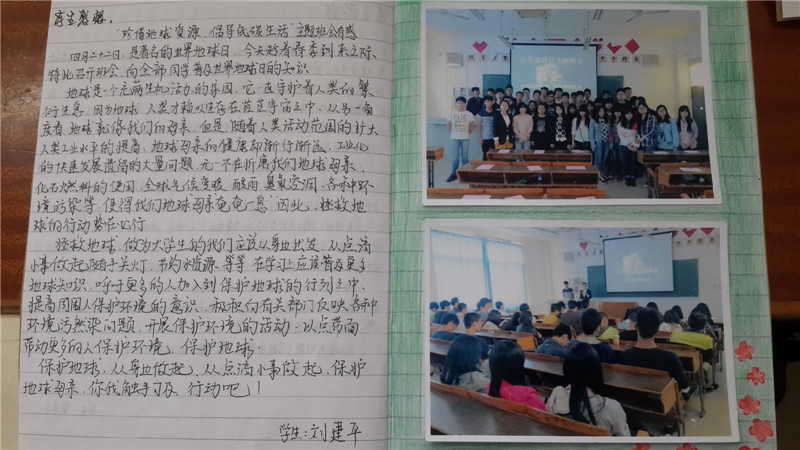 学生感想:
"珍惜地球资源,倡导低碳生活"主题班会有感
四月二十二日,是著名的世界地球日,今天趁着春季到来之际,
特此召开班会,向全部同学普及世界地球日的知识
地球是一个充满生机活力的家园,它一直守护着人类的繁
衍生息,因为地球,人类才赖以生存在茫茫宇宙之中,从另一角
度看,地球就像我们的母亲,但是,随着人类活动范围的扩大
人类工业水平的提高,地球母亲的健康却渐行渐远,工业化
的快速发展遗留的大量问题,无一不在折磨我们地球母亲,
化石燃料的使用,全球气候变暖,酸雨,臭氧空洞,各种环
境污染等,使得我们地球母亲奄奄一息"因此,拯救地
球的行动势在必行
拯救地球,做为大学生的我们应该从身边出发,从点滴
小事做起,随手关灯,节约水资源,等等,在学习上应该普及更多
地球知识,呼吁更多的人加入到保护地球的行列之中,
提高周围人保护环境的意识,积极向有关部门反映各种
环境污染问题,开展保护环境的活动,以点带面
带动更多的人保护环境,保护地球.
保护地球,从身边做起,从点滴小事做起,保护
地球母亲,你我触手可及,行动吧!
学生:刘建平